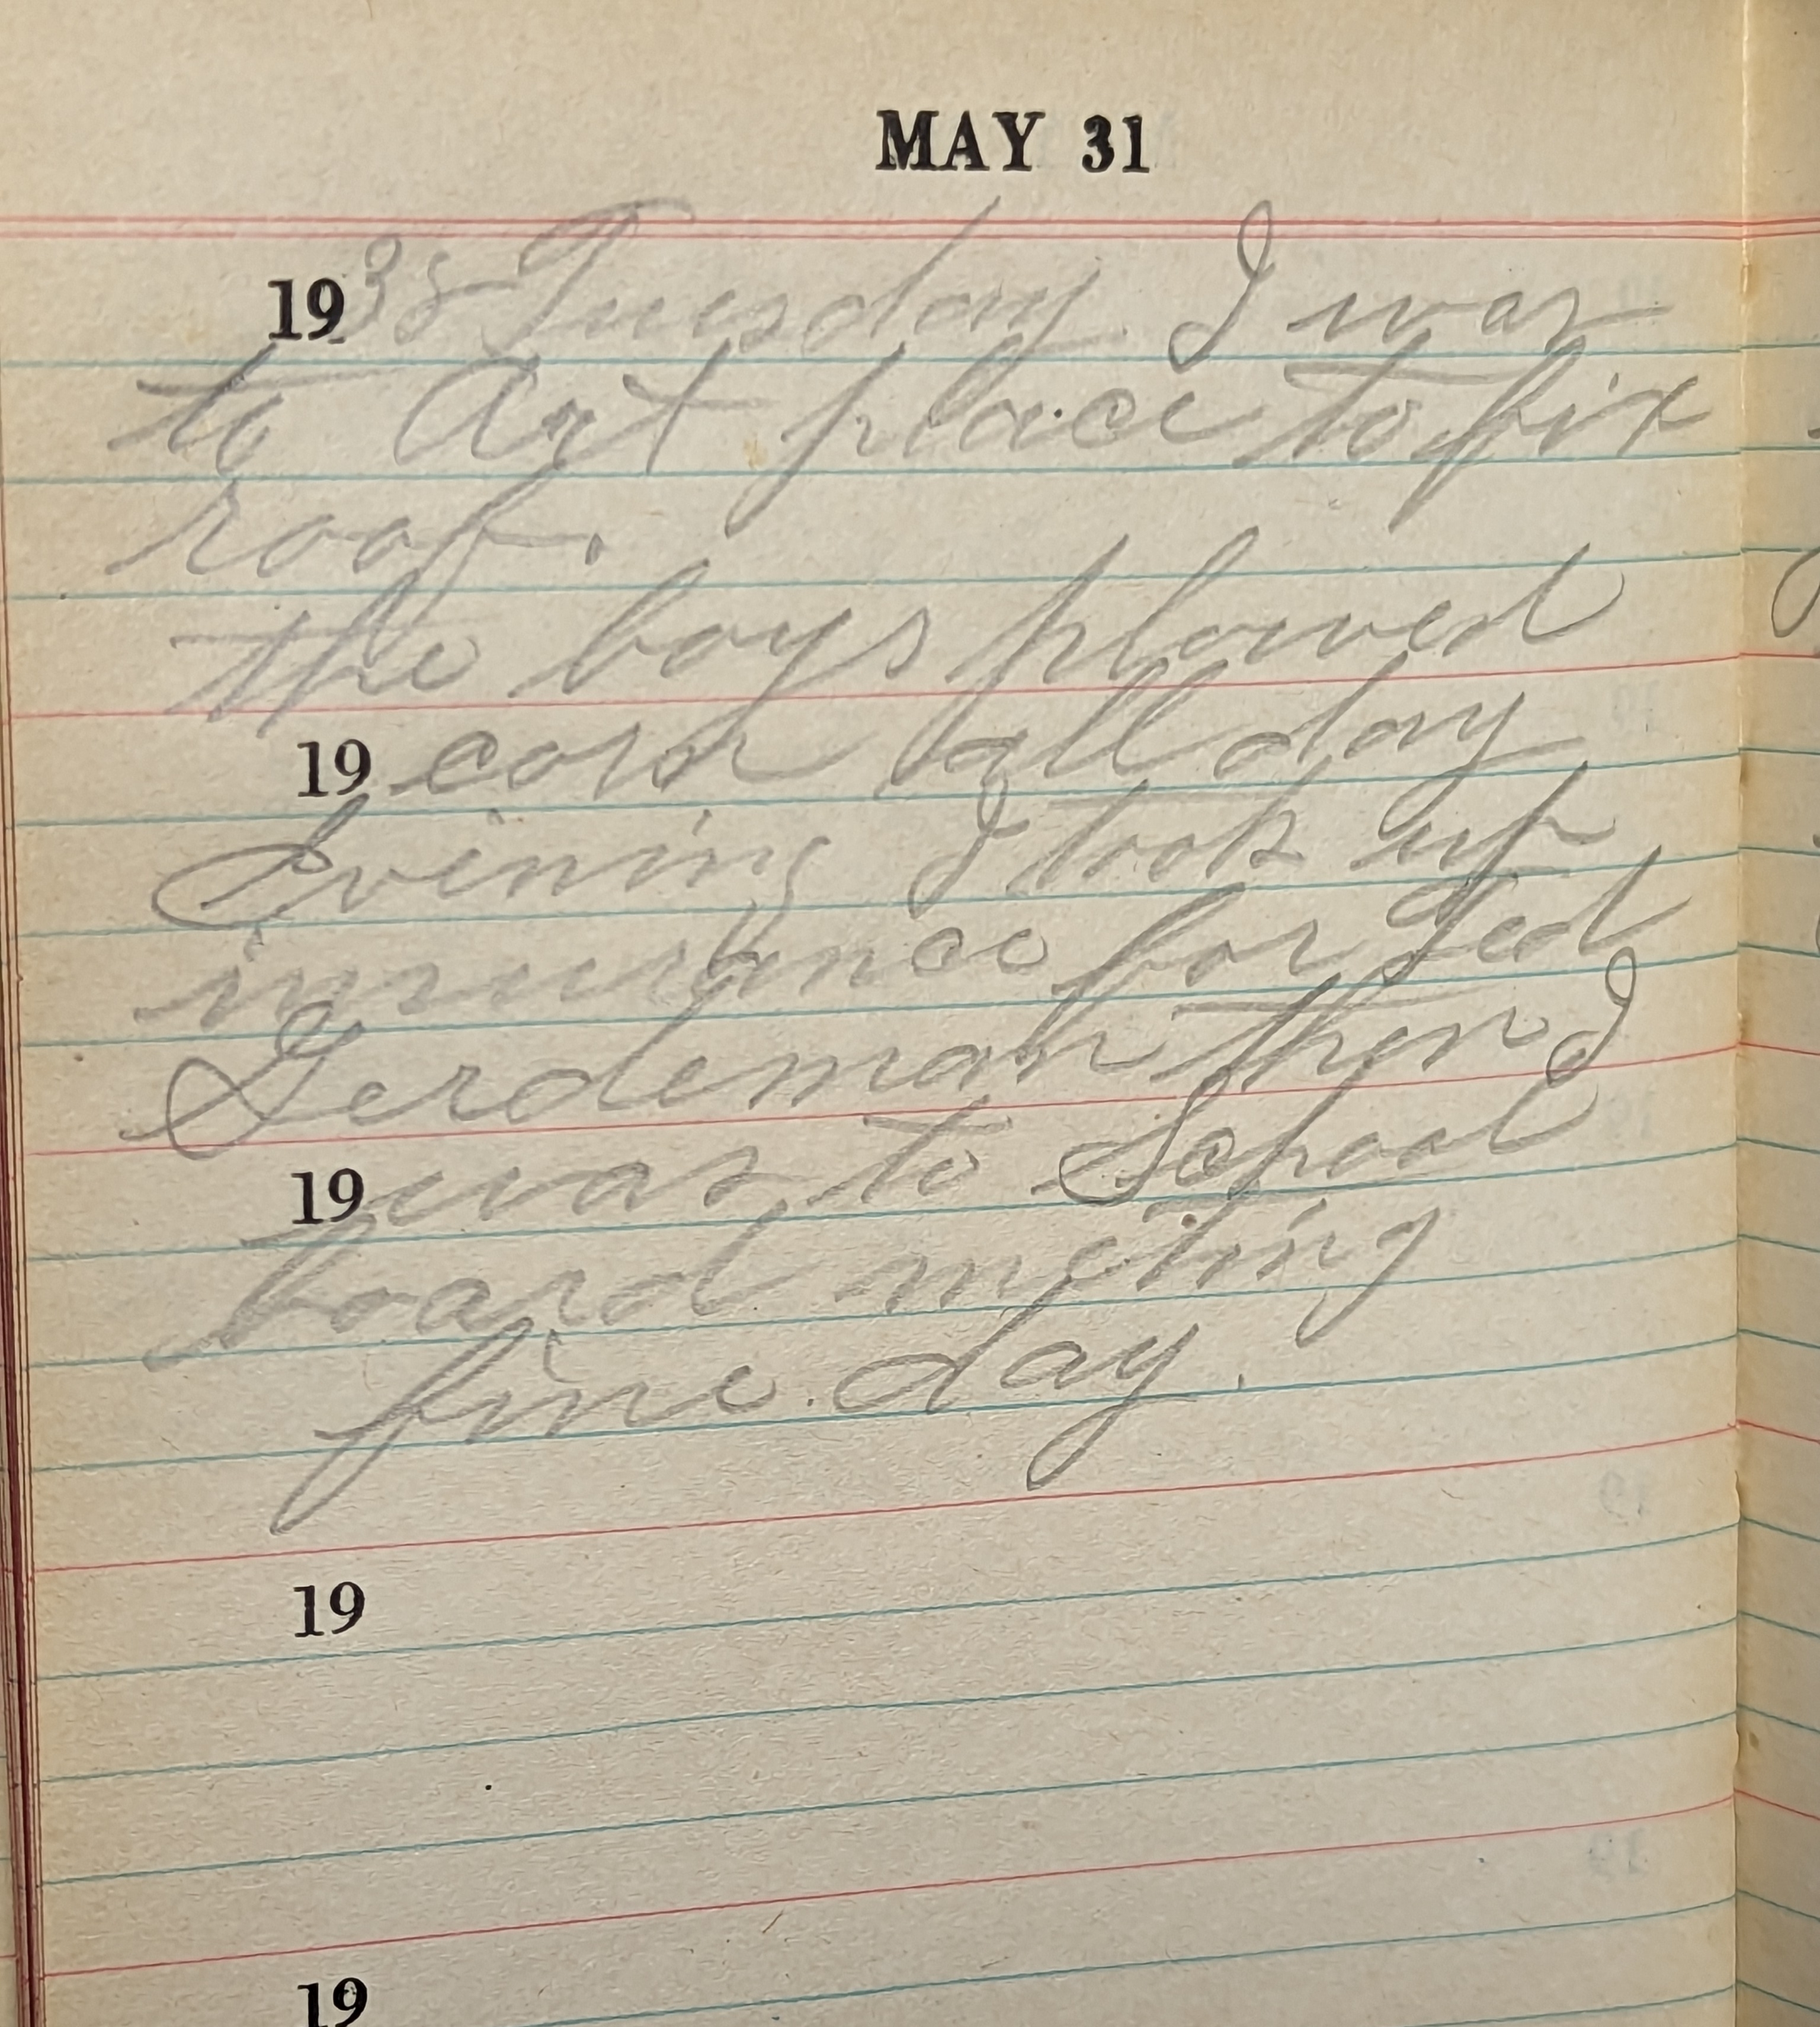 MAY 31
1938 Tuesday. I was
to Art place to fix
roof.
the boys plowed
19 corn all day
Evining I took up
insurance for Ted
Gerdeman then I
19 was to School
board meting
fine day.
19
19